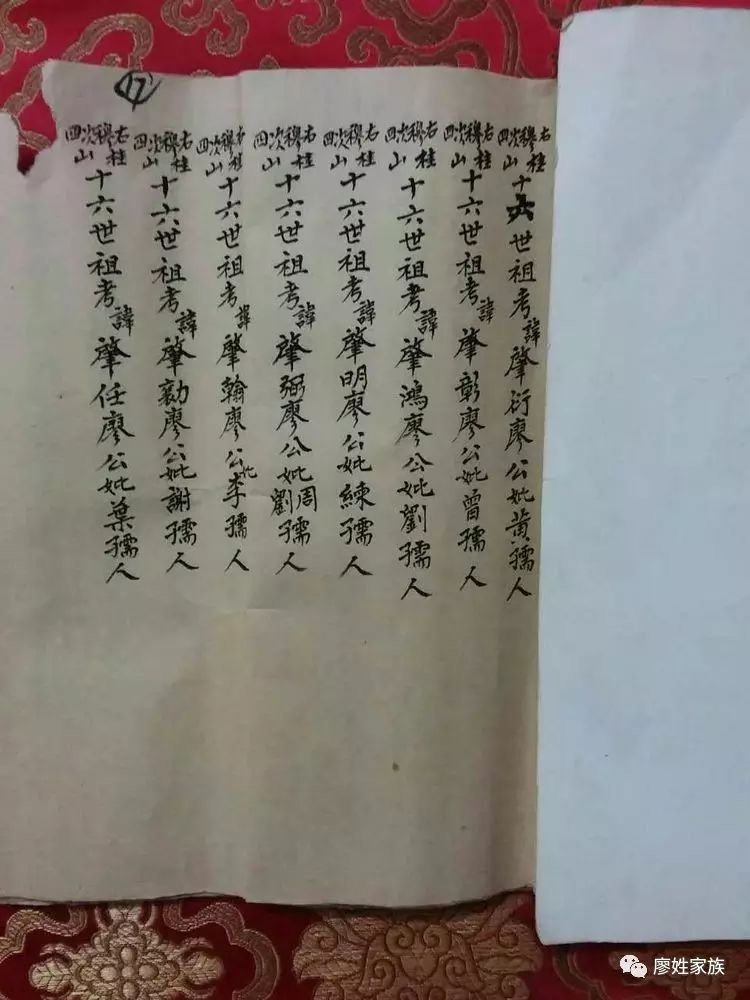 17
右桂穆次四山十六世祖考諱肇衍廖公妣黃孺人
右桂穆次四山十六世祖考諱肇彰廖公妣曾孺人
右桂穆次四山十六世祖考諱肇鴻廖公妣劉孺人
右桂穆次四山十六世祖考諱肇明廖公妣練孺人
右桂穆次四山十六世祖考諱肇弼廖公妣周劉孺人
右桂穆次四山十六世祖考諱肇翰廖公妣李孺人
右桂穆次四山十六世祖考諱肇勷廖公妣謝孺人
右桂穆次四山十六世祖考諱肇任廖公妣葉孺人
廖姓家族